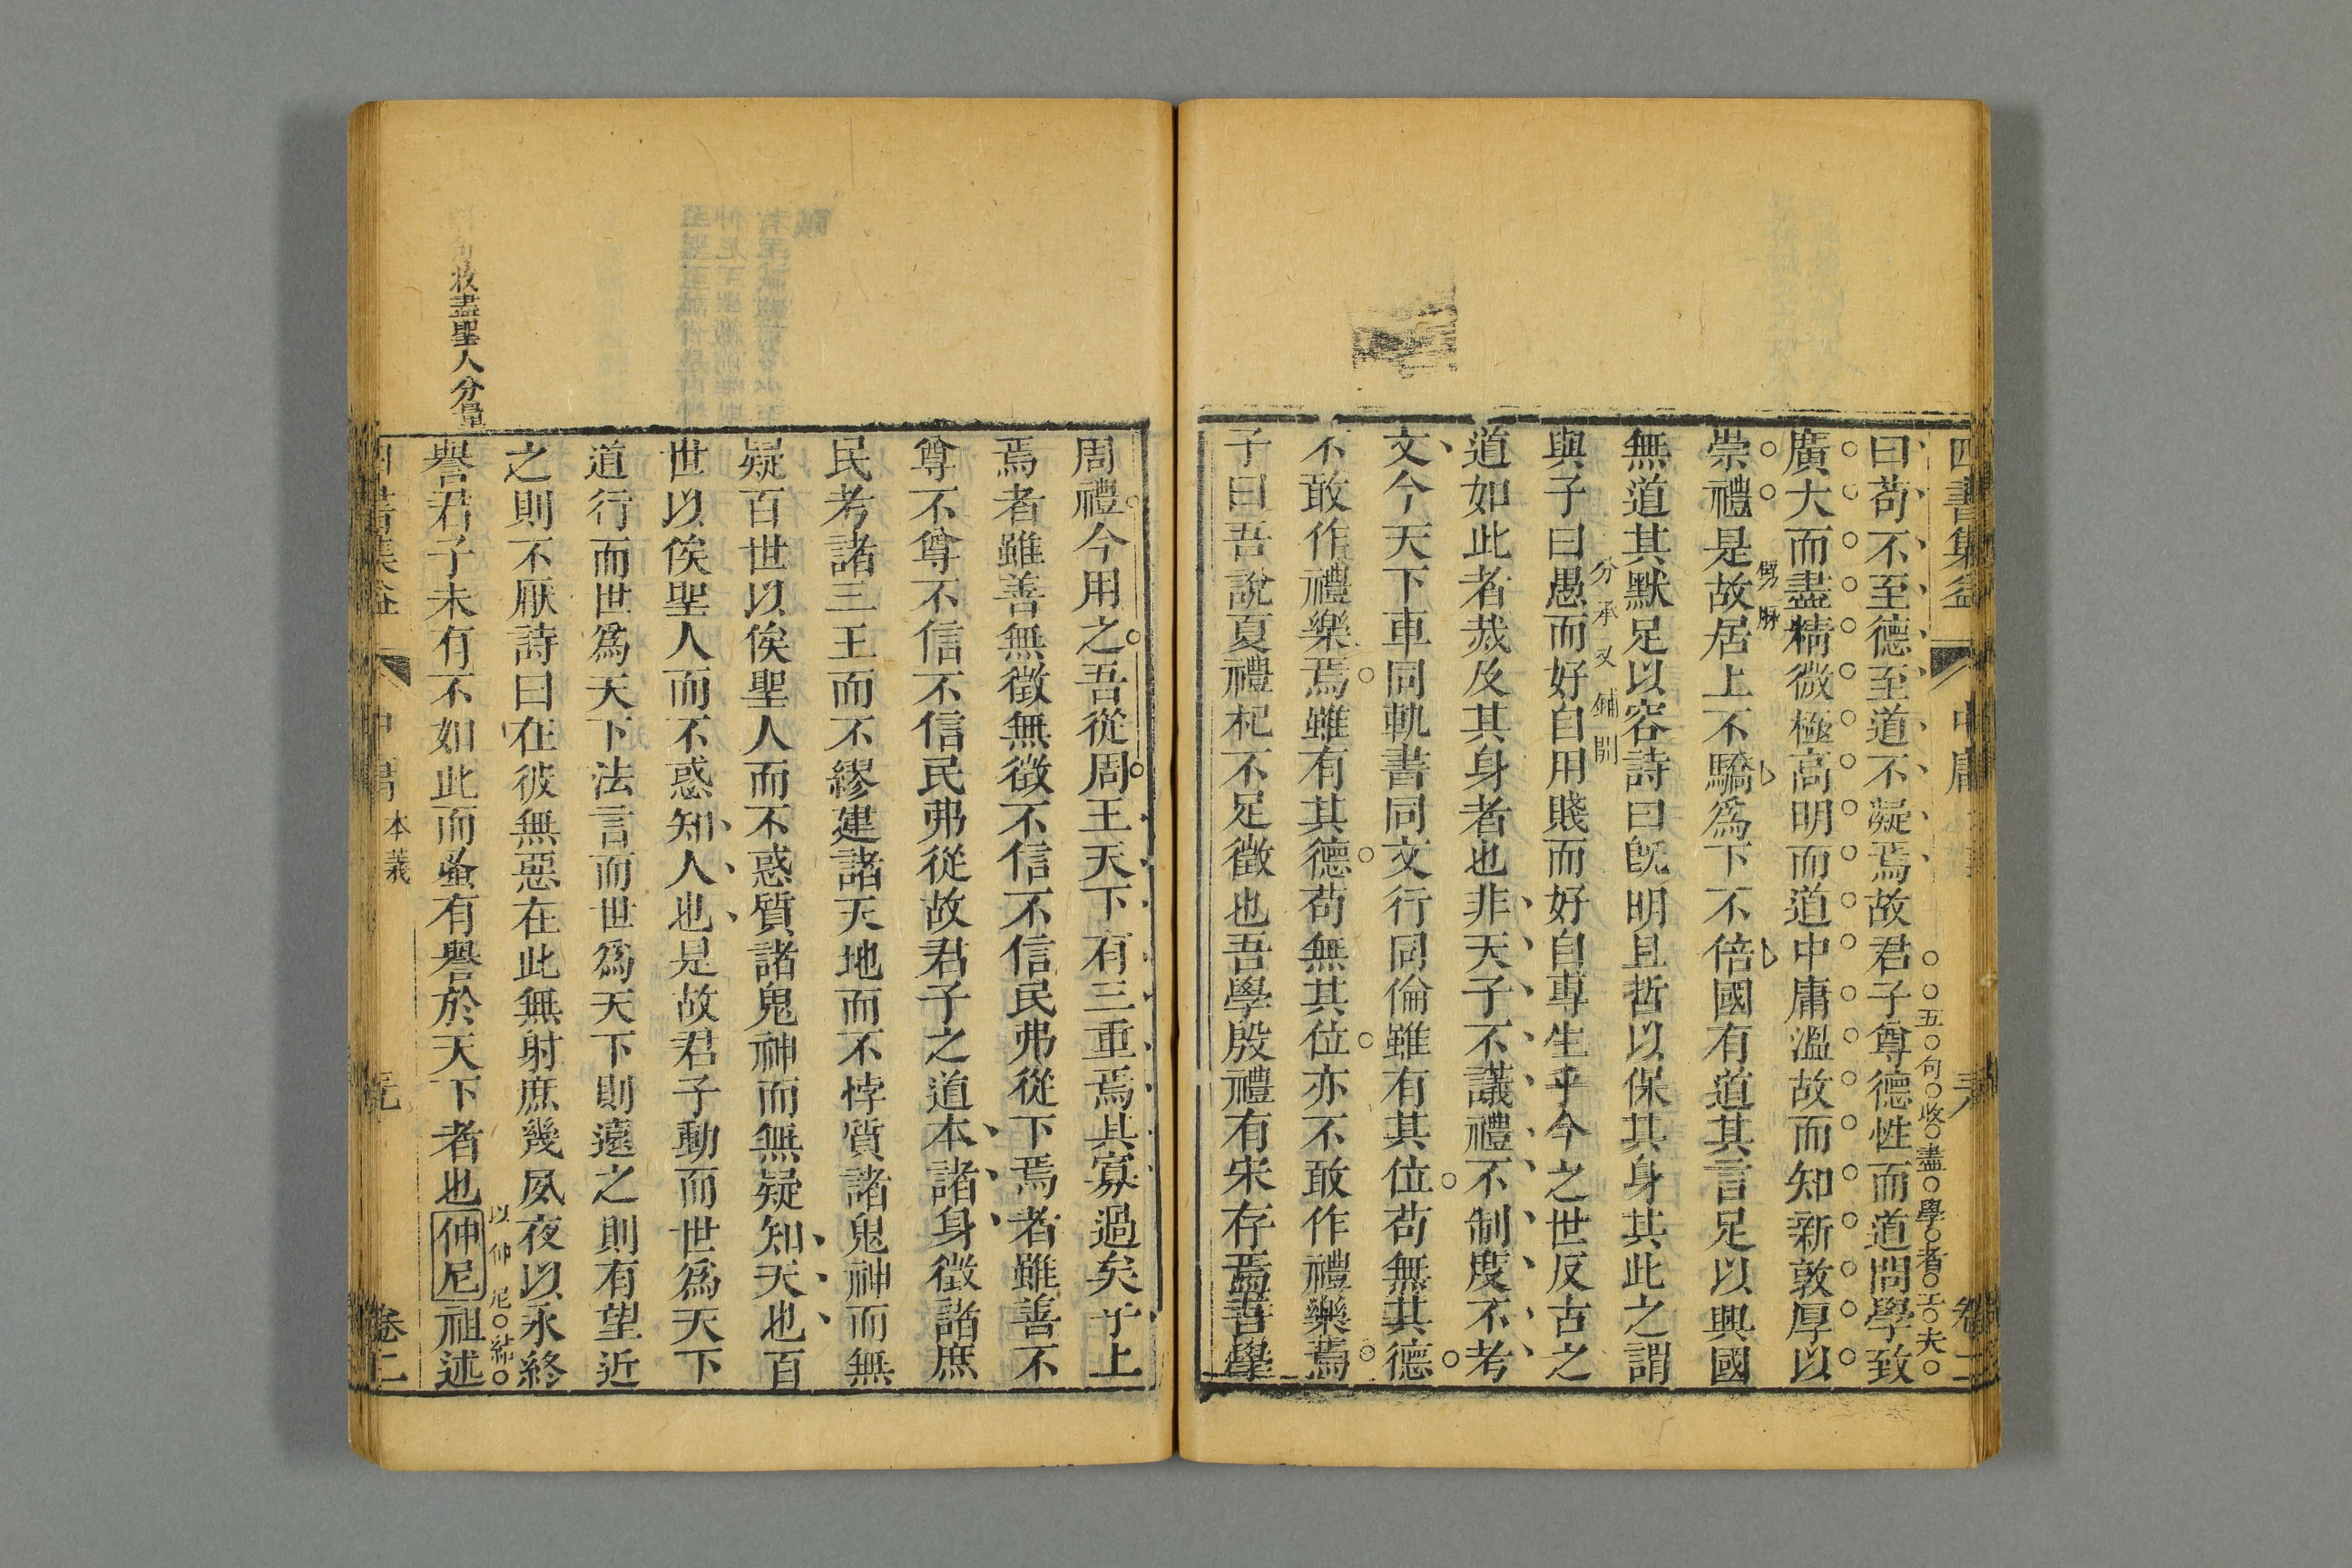 曰苟不至德至道不凝焉故君子尊德性而道問學致
五句收盡學者工夫
廣大而盡精微極高明而道中庸溫故而知新敦厚以
崇禮是故居上不驕爲下不倍國有道其言足以興國
無道其默足以容詩曰旣明且哲以保其身其此之謂
分承又鋪開
與子曰愚而好自用賤而好自專生乎今之世反古之
道如此者烖及其身者也非天子不議禮不制度不考
文今天下車同軌書同文行同倫雖有其位苟無其德
不敢作禮樂焉雖有其德苟無其位亦不敢作禮樂焉
子曰吾說夏禮杞不足徵也吾學殷禮有宋存焉吾學
周禮今用之吾從周王天下有三重焉其寡過矣乎上
焉者雖善無徵無徵不信不信民弗從下焉者雖善不
尊不尊不信不信民弗從故君子之道本諸身徵諸庶
民考諸三王而不繆建諸天地而不悖質諸鬼神而無
疑百世以俟聖人而不惑質諸鬼神而無疑知天也百
世以俟聖人而不惑知人也是故君子動而世爲天下
道行而世爲天下法言而世爲天下則遠之則有望近
之則不厭詩曰在彼無惡在此無射庶幾夙夜以永終
以仲尼結
譽君子未有不如此而蚤有譽於天下者也仲尼祖述
收盡聖人分量
本義
卷二